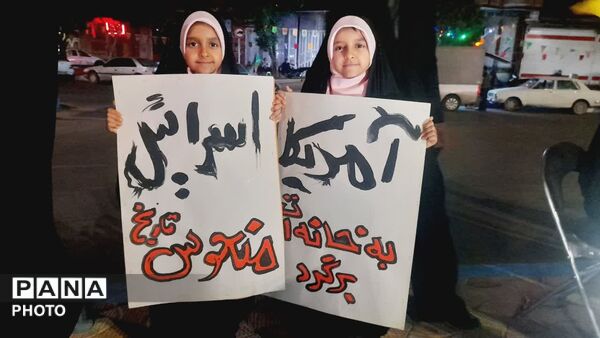 آمریکا
به خانه ات
برگرد
اسرائیل
منحوس تاریخ
PANA
PHOTO